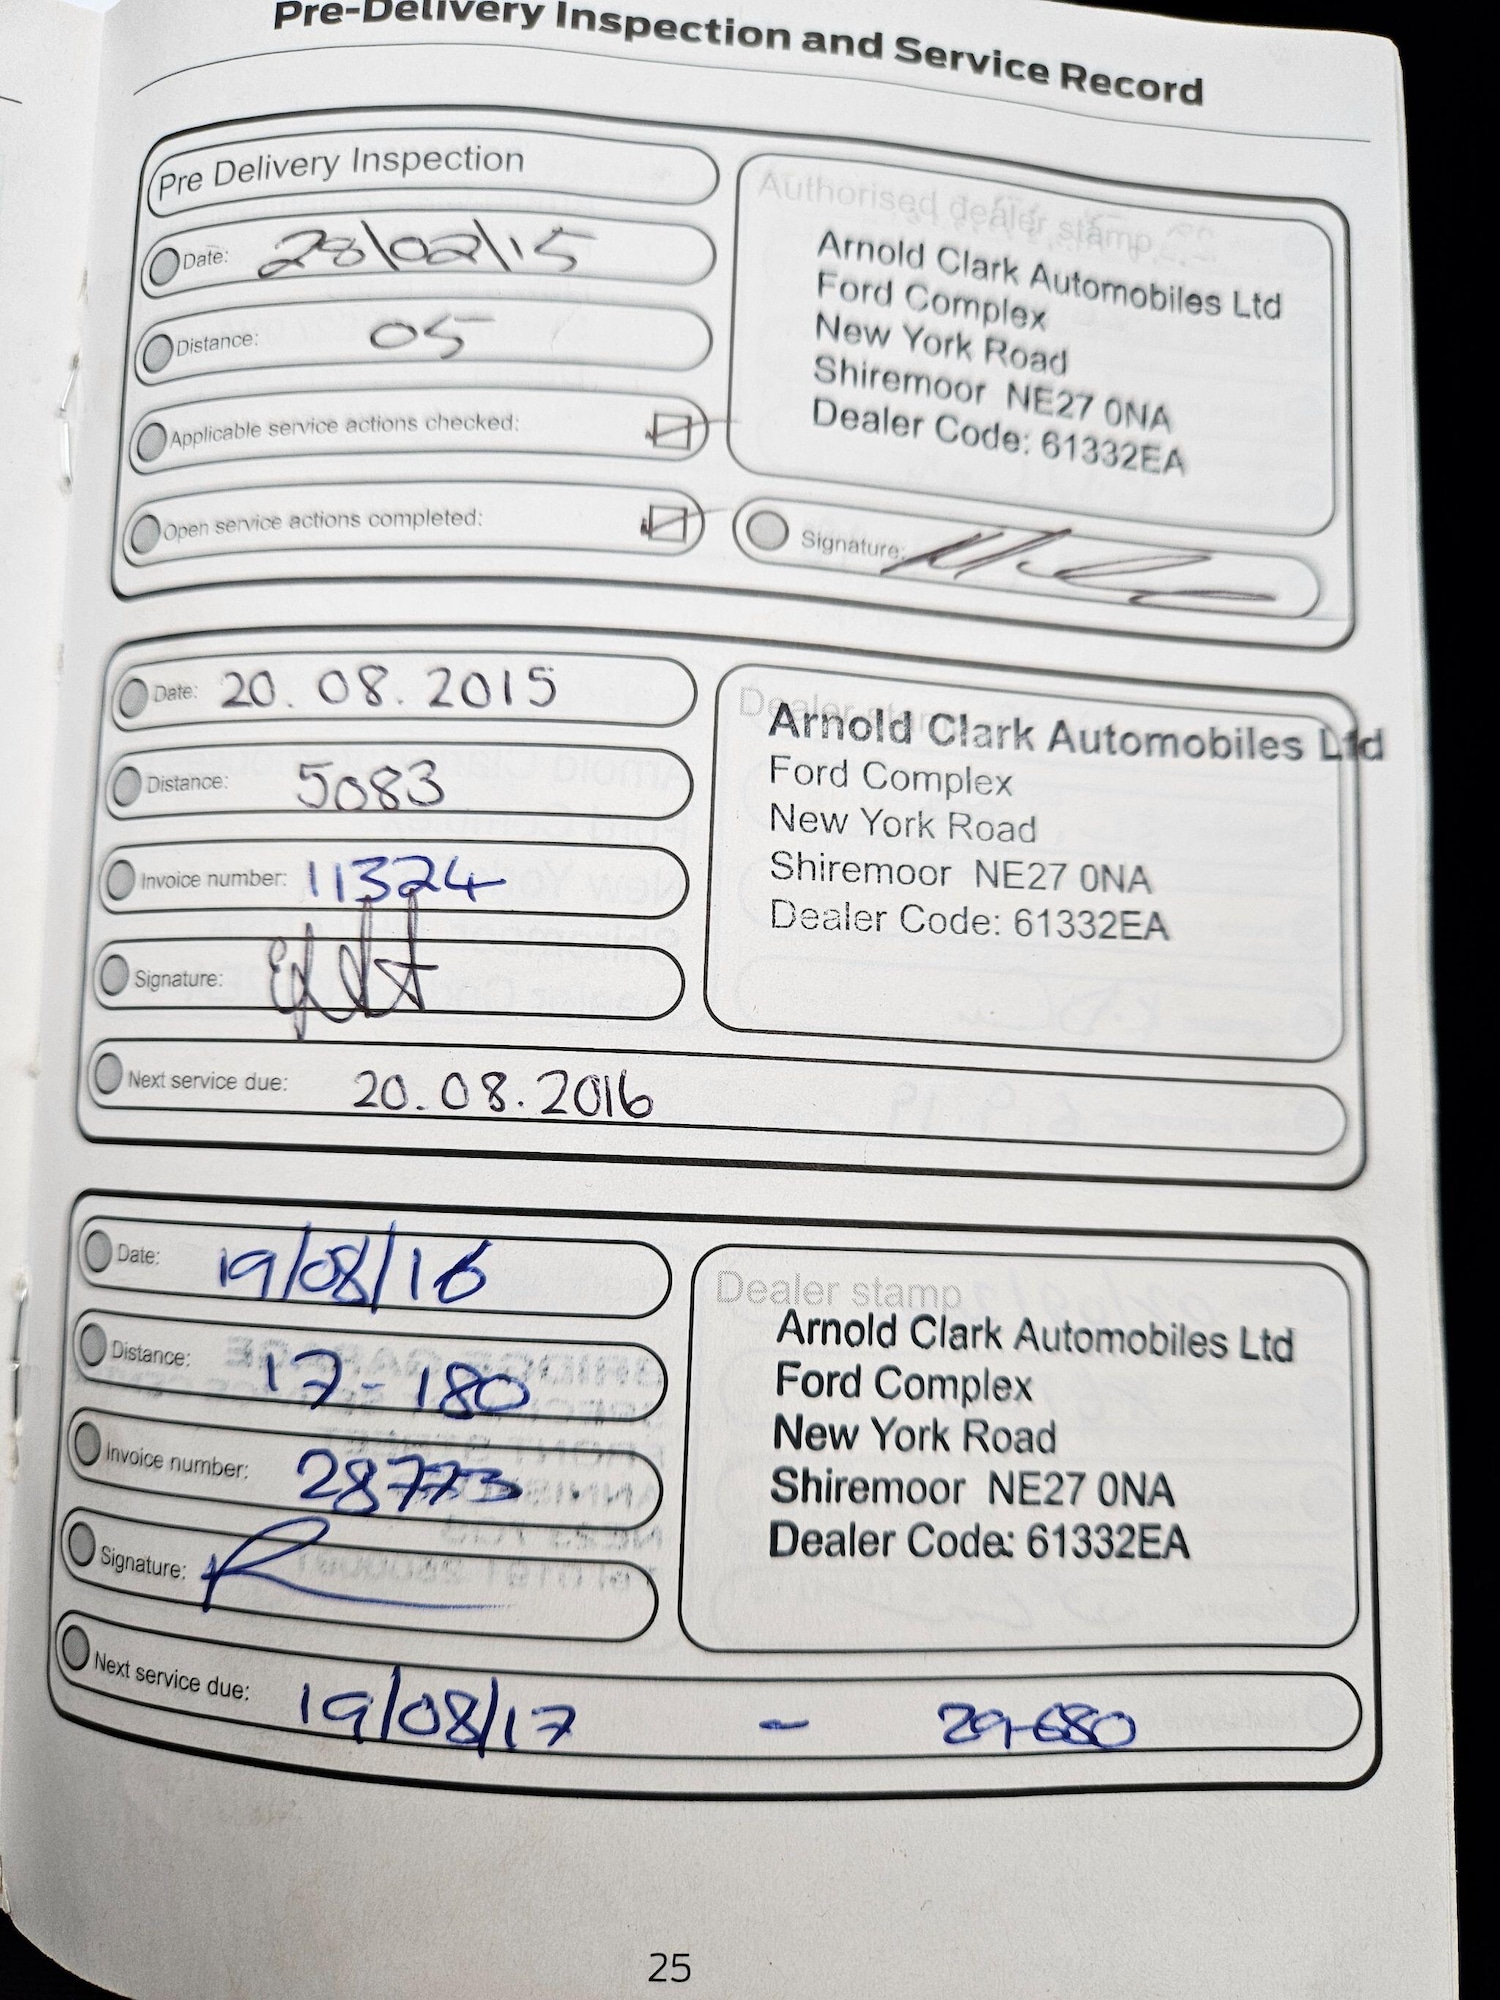 Pre-Delivery Inspection and Service Record
Pre Delivery Inspection
Date: 28/02/15
Distance: 05
Applicable service actions checked:
Open service actions completed:
Authorised dealer stamp
Arnold Clark Automobiles Ltd
Ford Complex
New York Road
Shiremoor NE27 0NA
Dealer Code: 61332EA
Signature:
Date: 20.08.2015
Distance: 5083
Invoice number: 11324
Signature:
Dealer stamp
Arnold Clark Automobiles Ltd
Ford Complex
New York Road
Shiremoor NE27 0NA
Dealer Code: 61332EA
Next service due: 20.08.2016
Date: 19/08/16
Distance: 17-180
Invoice number: 28773
Signature:
Dealer stamp
Arnold Clark Automobiles Ltd
Ford Complex
New York Road
Shiremoor NE27 0NA
Dealer Code: 61332EA
Next service due: 19/08/17 - 29-680
25